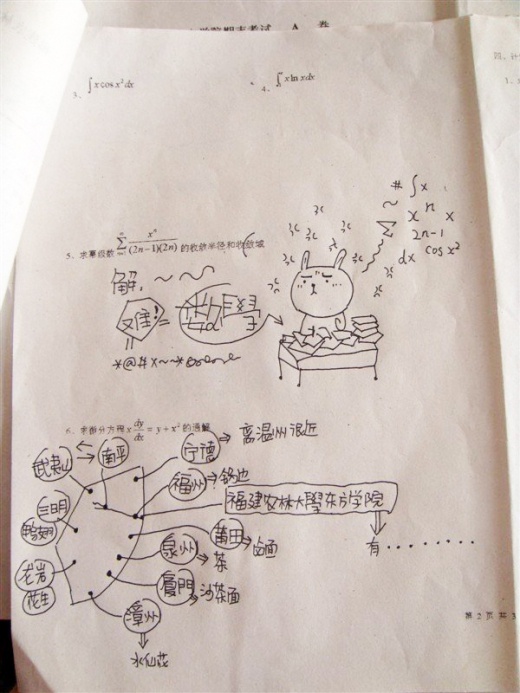 学院期末考试 A 卷
3、∫ x cos x² dx
4、∫ x ln x dx
# ∫ x
~ Σ x n x
2n-1
dx cos x²
5、求幂级数 ∑ xⁿ/(2n-1)(2n) 的收敛半径和收敛域
解: ~ ~ ~
难!
*@#x~~*
6、求微分方程 x dy/dx = y + x² 的通解
武夷山
南平
宁德 → 离温州很近
福州
福建农林大學东方学院
有········
三明
莆田 → 卤面
泉州 → 茶
龙岩
花生
厦門 → 沙茶面
漳州
水仙花
第 2 页 共 3